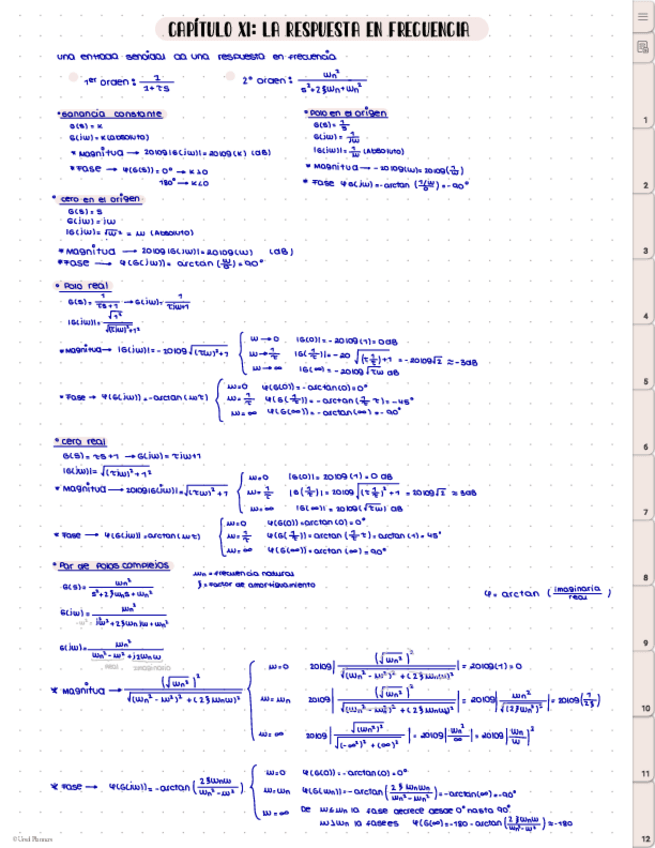 CAPÍTULO XI: LA RESPUESTA EN FRECUENCIA
una entrada senoidal da una respuesta en frecuencia
1er orden: 1/(1+τs)   2° orden: ωn²/(s²+2ξωn+ωn²)
*Ganancia constante
G(s)=K
G(jω)=K (Absoluto)
* Magnitud → 20log|G(jω)|=20log(K) (dB)
* Fase → φ(G(s))=0° → K>0
180° → K<0
*Polo en el origen
G(s)=1/s
G(jω)=1/jω
|G(jω)|=1/ω (Absoluto)
* Magnitud → -20log(ω)=20log(1/ω)
* Fase φG(jω)=-arctan = -90°
* Cero en el origen
G(s)=s
G(jω)=jω
|G(jω)|=√ω² = ω (Absoluto)
*Magnitud → 20log|G(jω)|=20log(ω) (dB)
*Fase → φ(G(jω))= arctan(ω/0)=90°
* Polo real
G(s)=1/(τs+1) → G(jω)=1/(τjω+1)
|G(jω)|=√1²/√((τjω)²+1²)
*Magnitud → |G(jω)|=-20log√((τω)²+1)
ω→0 |G(0)|=-20log(1)=0dB
ω→1/τ |G(1/τ)|=-20√((τ1/τ)+1) =-20log√2 ≈-3dB
ω→∞ |G(∞)=-20log√τω dB
* Fase → φ(G(jω))=-arctan(ωτ)
ω=0 φ(G(0))=-arctan(0)=0°
ω=1/τ φ(G(1/τ))=-arctan(1/τ τ)=-45°
ω=∞ φ(G(∞))=-arctan(∞)=-90°
* Cero real
G(s)=τs+1 → G(jω)=τjω+1
|G(jω)|=√((τjω)²+1²)
* Magnitud → 20log|G(jω)|=√((τω)²+1)
ω=0 |G(0)|=20log(1)=0 dB
ω=1/τ |G(1/τ)|=20log√((τ1/τ)²+1) =20log√2 ≈3dB
ω=∞ |G(∞)|=20log(√τω) dB
* Fase → φ(G(jω))=arctan(ωτ)
ω=0 φ(G(0))=arctan(0)=0°
ω=1/τ φ(G(1/τ))=arctan(1/τ τ)=arctan(1)=45°
ω=∞ φ(G(∞))=arctan(∞)=90°
* Par de polos complejos
ωn=frecuencia natural
ξ=factor de amortiguamiento
G(s)=ωn²/(s²+2ξωns+ωn²)
φ=arctan(imaginaria/real)
G(jω)=ωn²/(j²ω²+2ξωnjω+ωn²)
-ω²
G(jω)=ωn²/(ωn²-ω²+j2ξωnω)
real imaginario
* Magnitud → (√ωn²)²/√((ωn²-ω²)²+(2ξωnω)²)
ω=0 20log|(√ωn²)²/√((ωn²-ω²)²+(2ξωnω)²)|=20log(1)=0
ω=ωn 20log|(√ωn²)²/√((ωn²-ω²)²+(2ξωnω)²)|=20log|ωn²/√(2ξωn²)²|=20log(1/2ξ)
ω=∞ 20log|√(ωn²)²/√((-∞²)²+(∞)²)|=20log|ωn²/∞|=20log|ωn/ω|²
* Fase → φ(G(jω))=-arctan(2ξωnω/(ωn²-ω²))
ω=0 φ(G(0))=-arctan(0)=0°
ω=ωn φ(G(ωn))=-arctan(2ξωnωn/(ωn²-ω²))=-arctan(∞)=-90°
ω=∞ De ω≤ωn la fase decrece desde 0° hasta 90°
ω≥ωn la fase es φ(G(∞))=-180-arctan(2ξωnω/(ωn²-ω²))≈-180
1
2
3
4
5
6
7
8
9
10
11
12